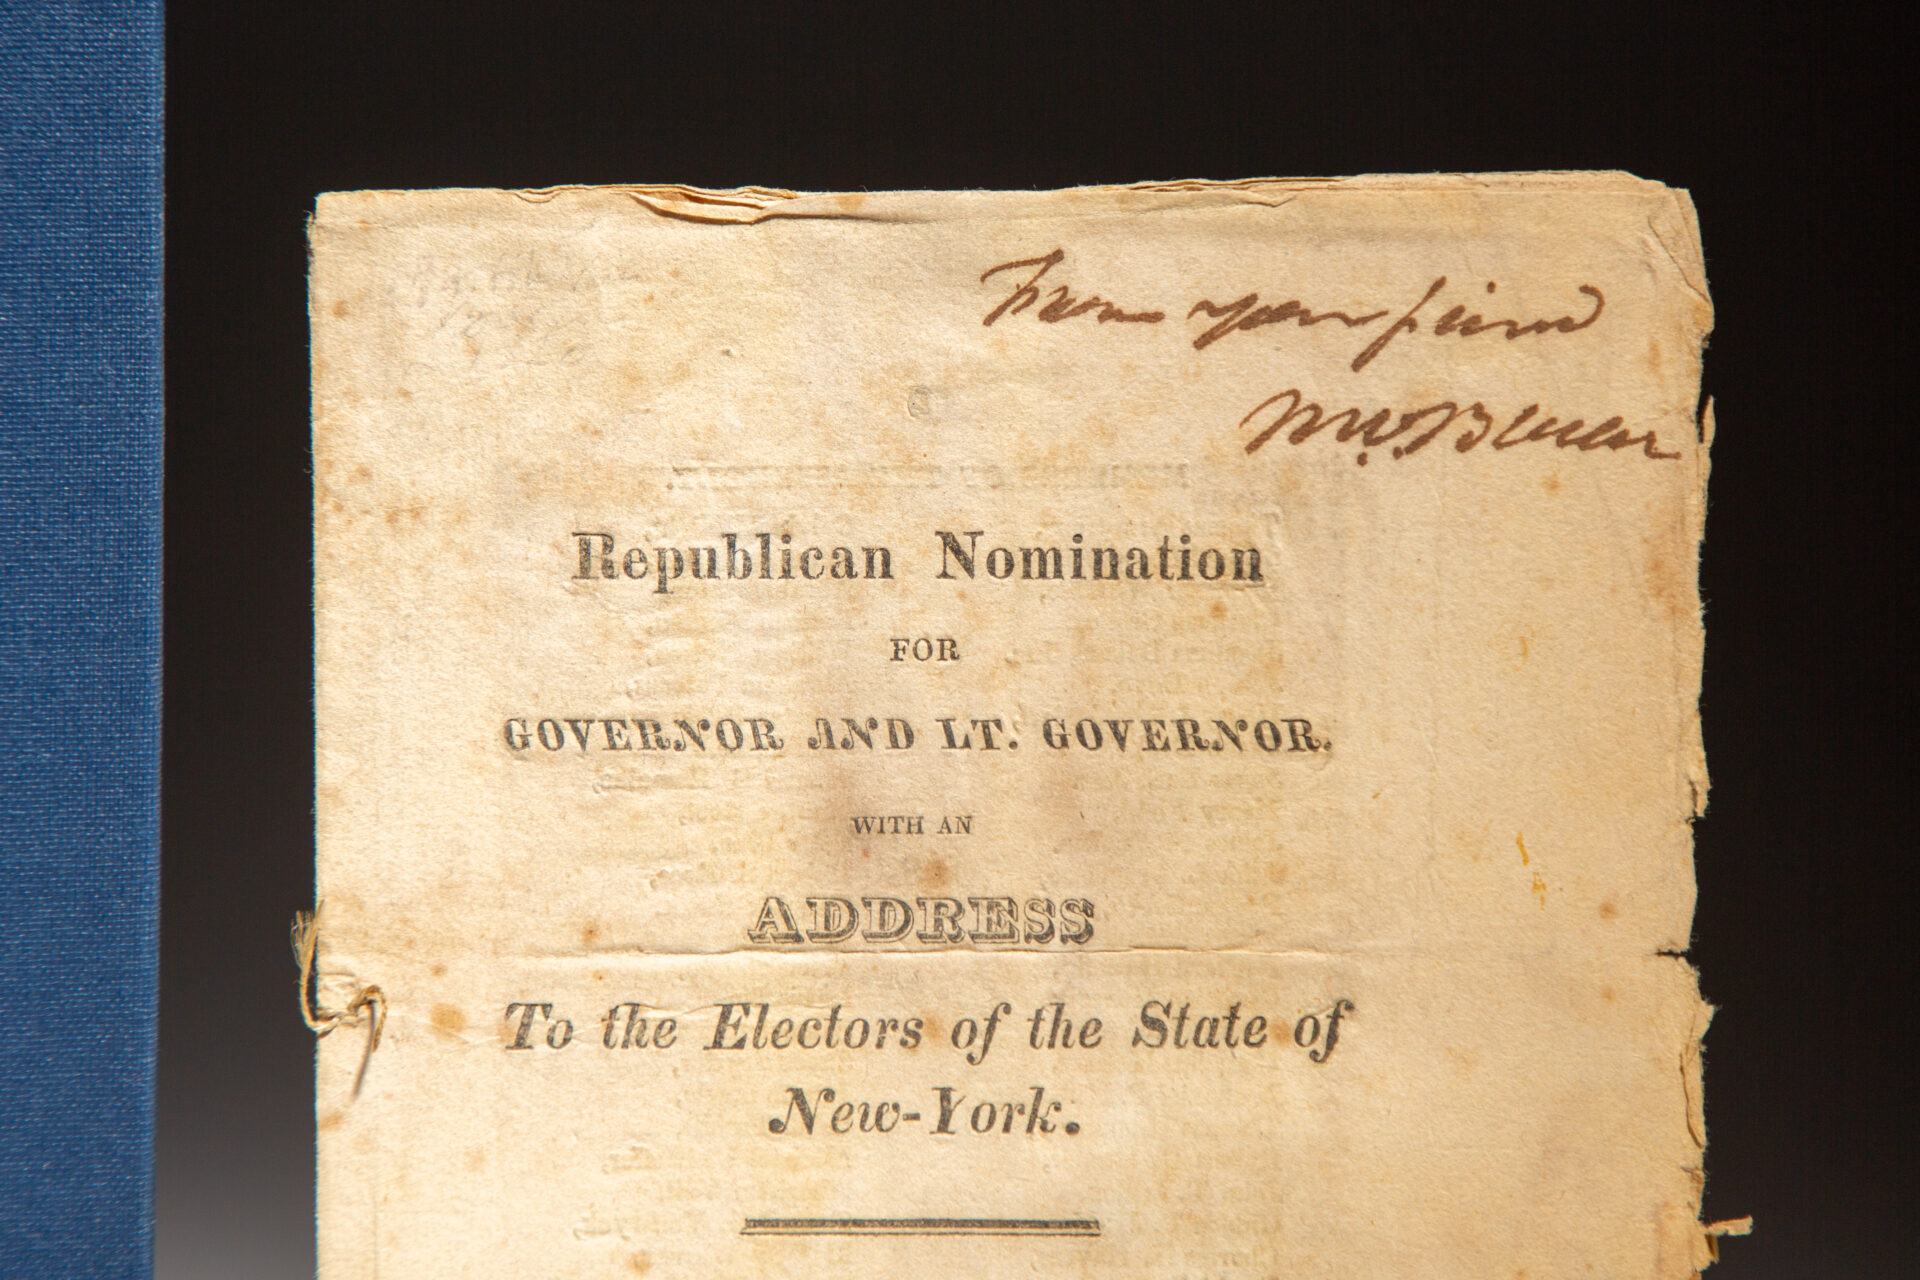 From your friend
M. V. Buren
Republican Nomination
FOR
GOVERNOR AND LT. GOVERNOR.
WITH AN
ADDRESS
To the Electors of the State of
New-York.